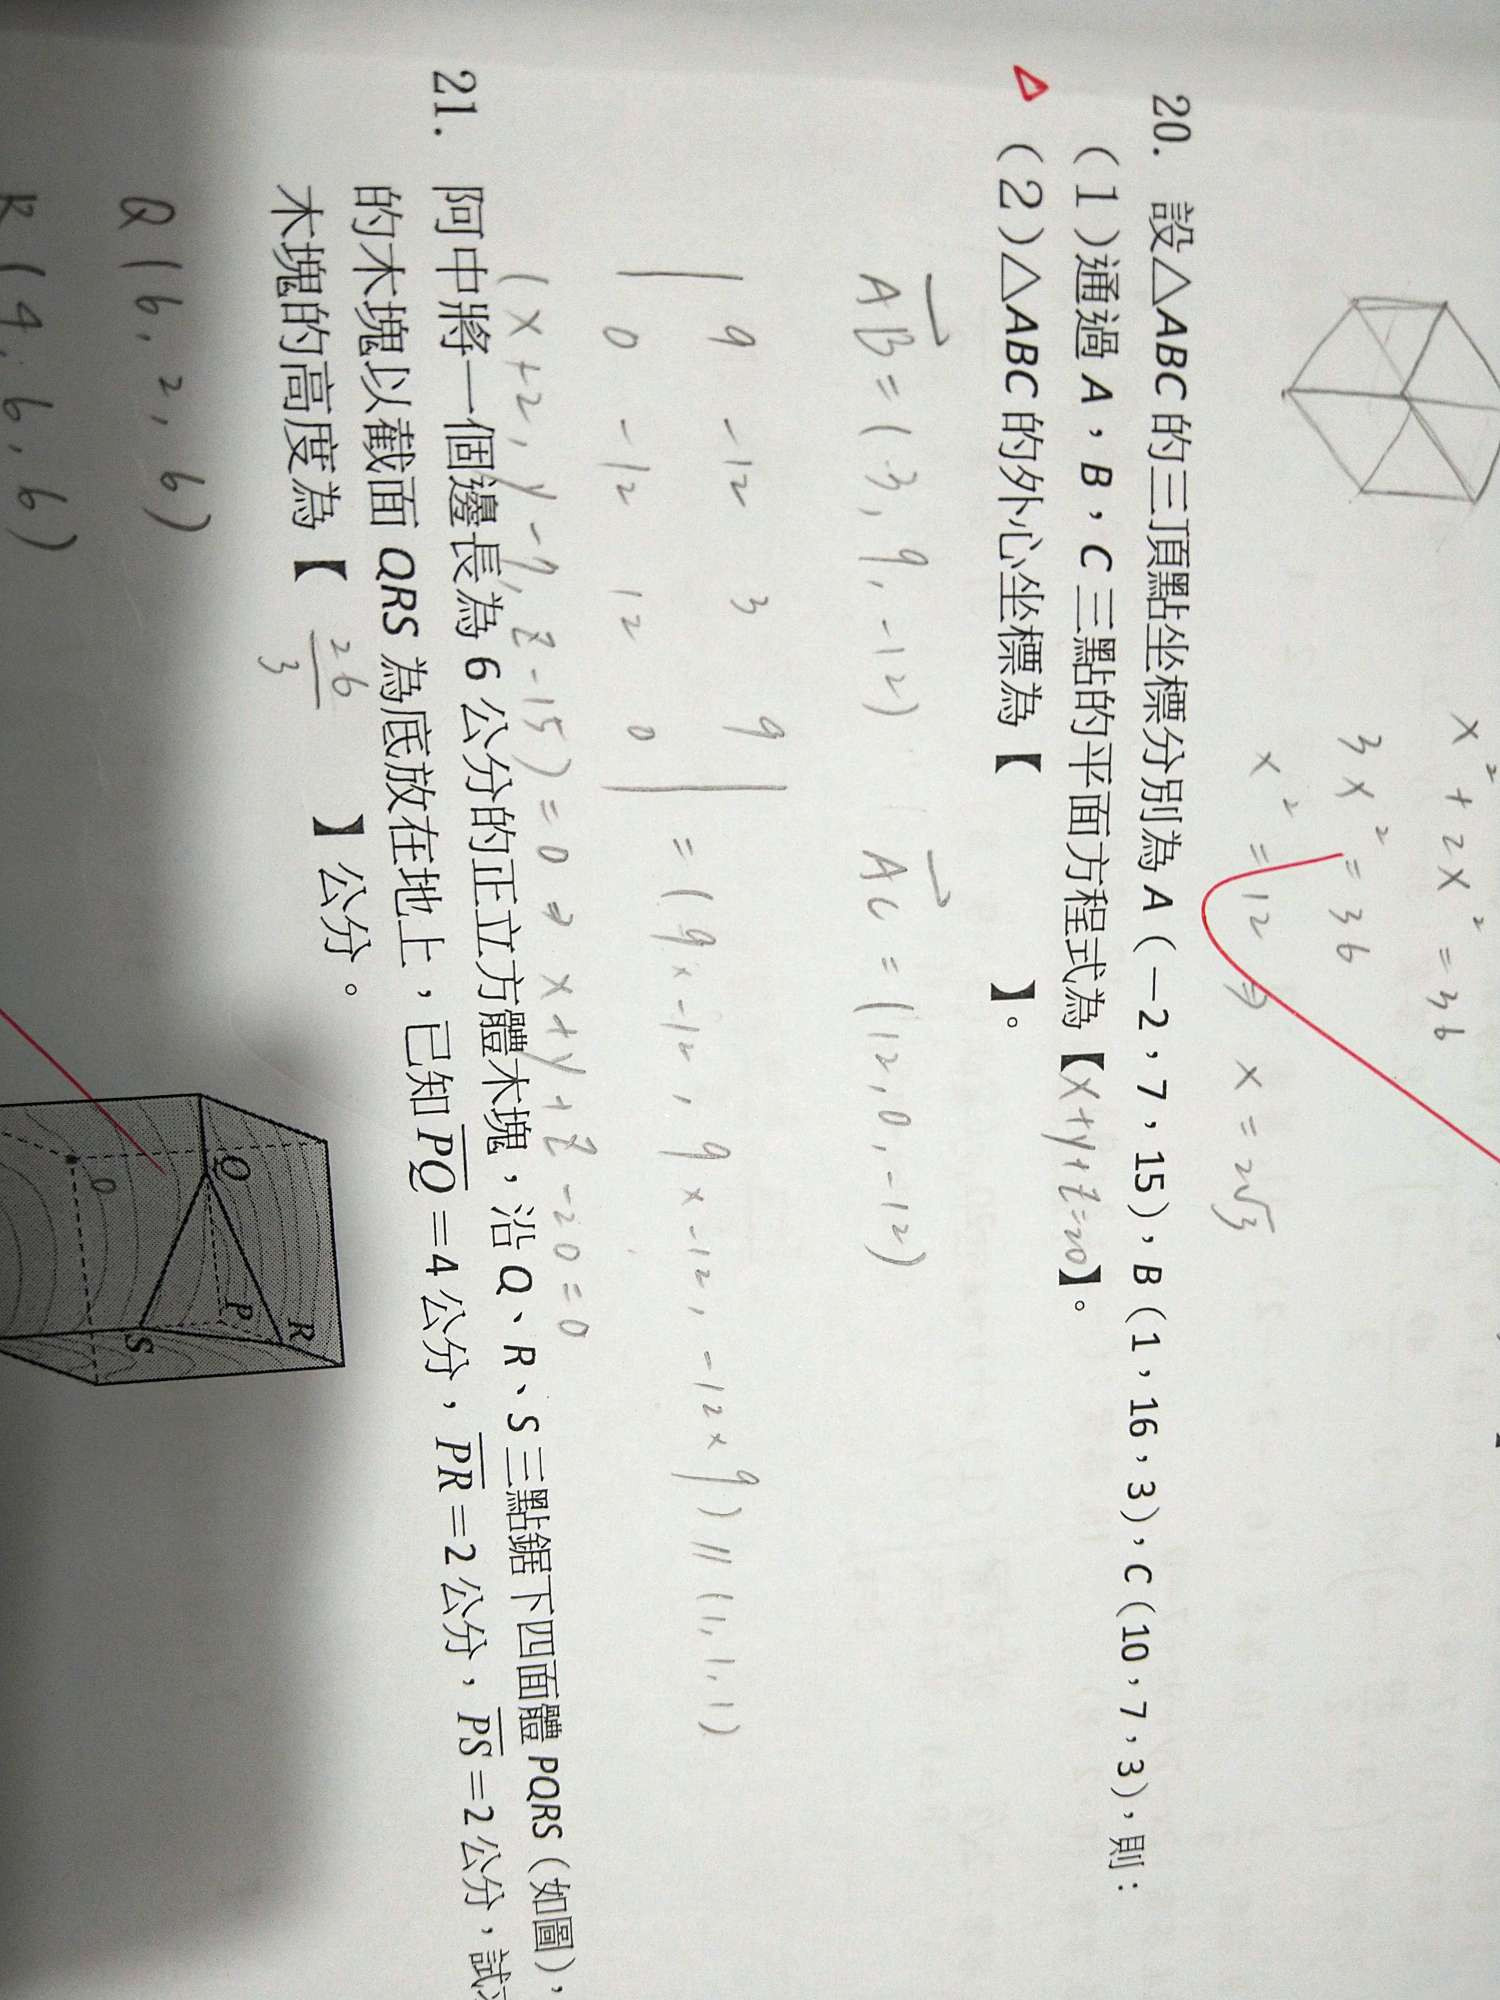 x² + 2x² = 36
3x² = 36
x² = 12 ⇒ x = 2√3
20. 設△ABC 的三頂點坐標分別為 A（－2，7，15）、B（1，16，3）、C（10，7，3），則：
（1）通過 A，B，C 三點的平面方程式為【x+y+z=20】。
△ （2）△ABC 的外心坐標為【　】。
AB = (3, 9, -12)　AC = (12, 0, -12)
| 9 -12 3 9 |
| 0 -12 12 0 | = (9×-12, 9×-12, -12×9) // (1, 1, 1)
(x+2, y-7, z-15) = 0 ⇒ x+y+z-20=0
21. 阿中將一個邊長為 6 公分的正立方體木塊，沿 Q、R、S 三點鋸下四面體 PQRS（如圖），
的木塊以截面 QRS 為底放在地上，已知 PQ＝4 公分，PR＝2 公分，PS＝2 公分，試
木塊的高度為【 26/3 】公分。
Q (6, 2, 6)
R (4, 6, 6)
Q
P
R
S
O